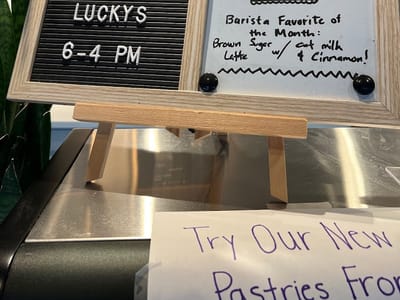 LUCKYS
6-4 PM
Barista Favorite of
the Month:
Brown Suger w/ oat milk
Latte & Cinnamon!
Try Our New
Pastries From